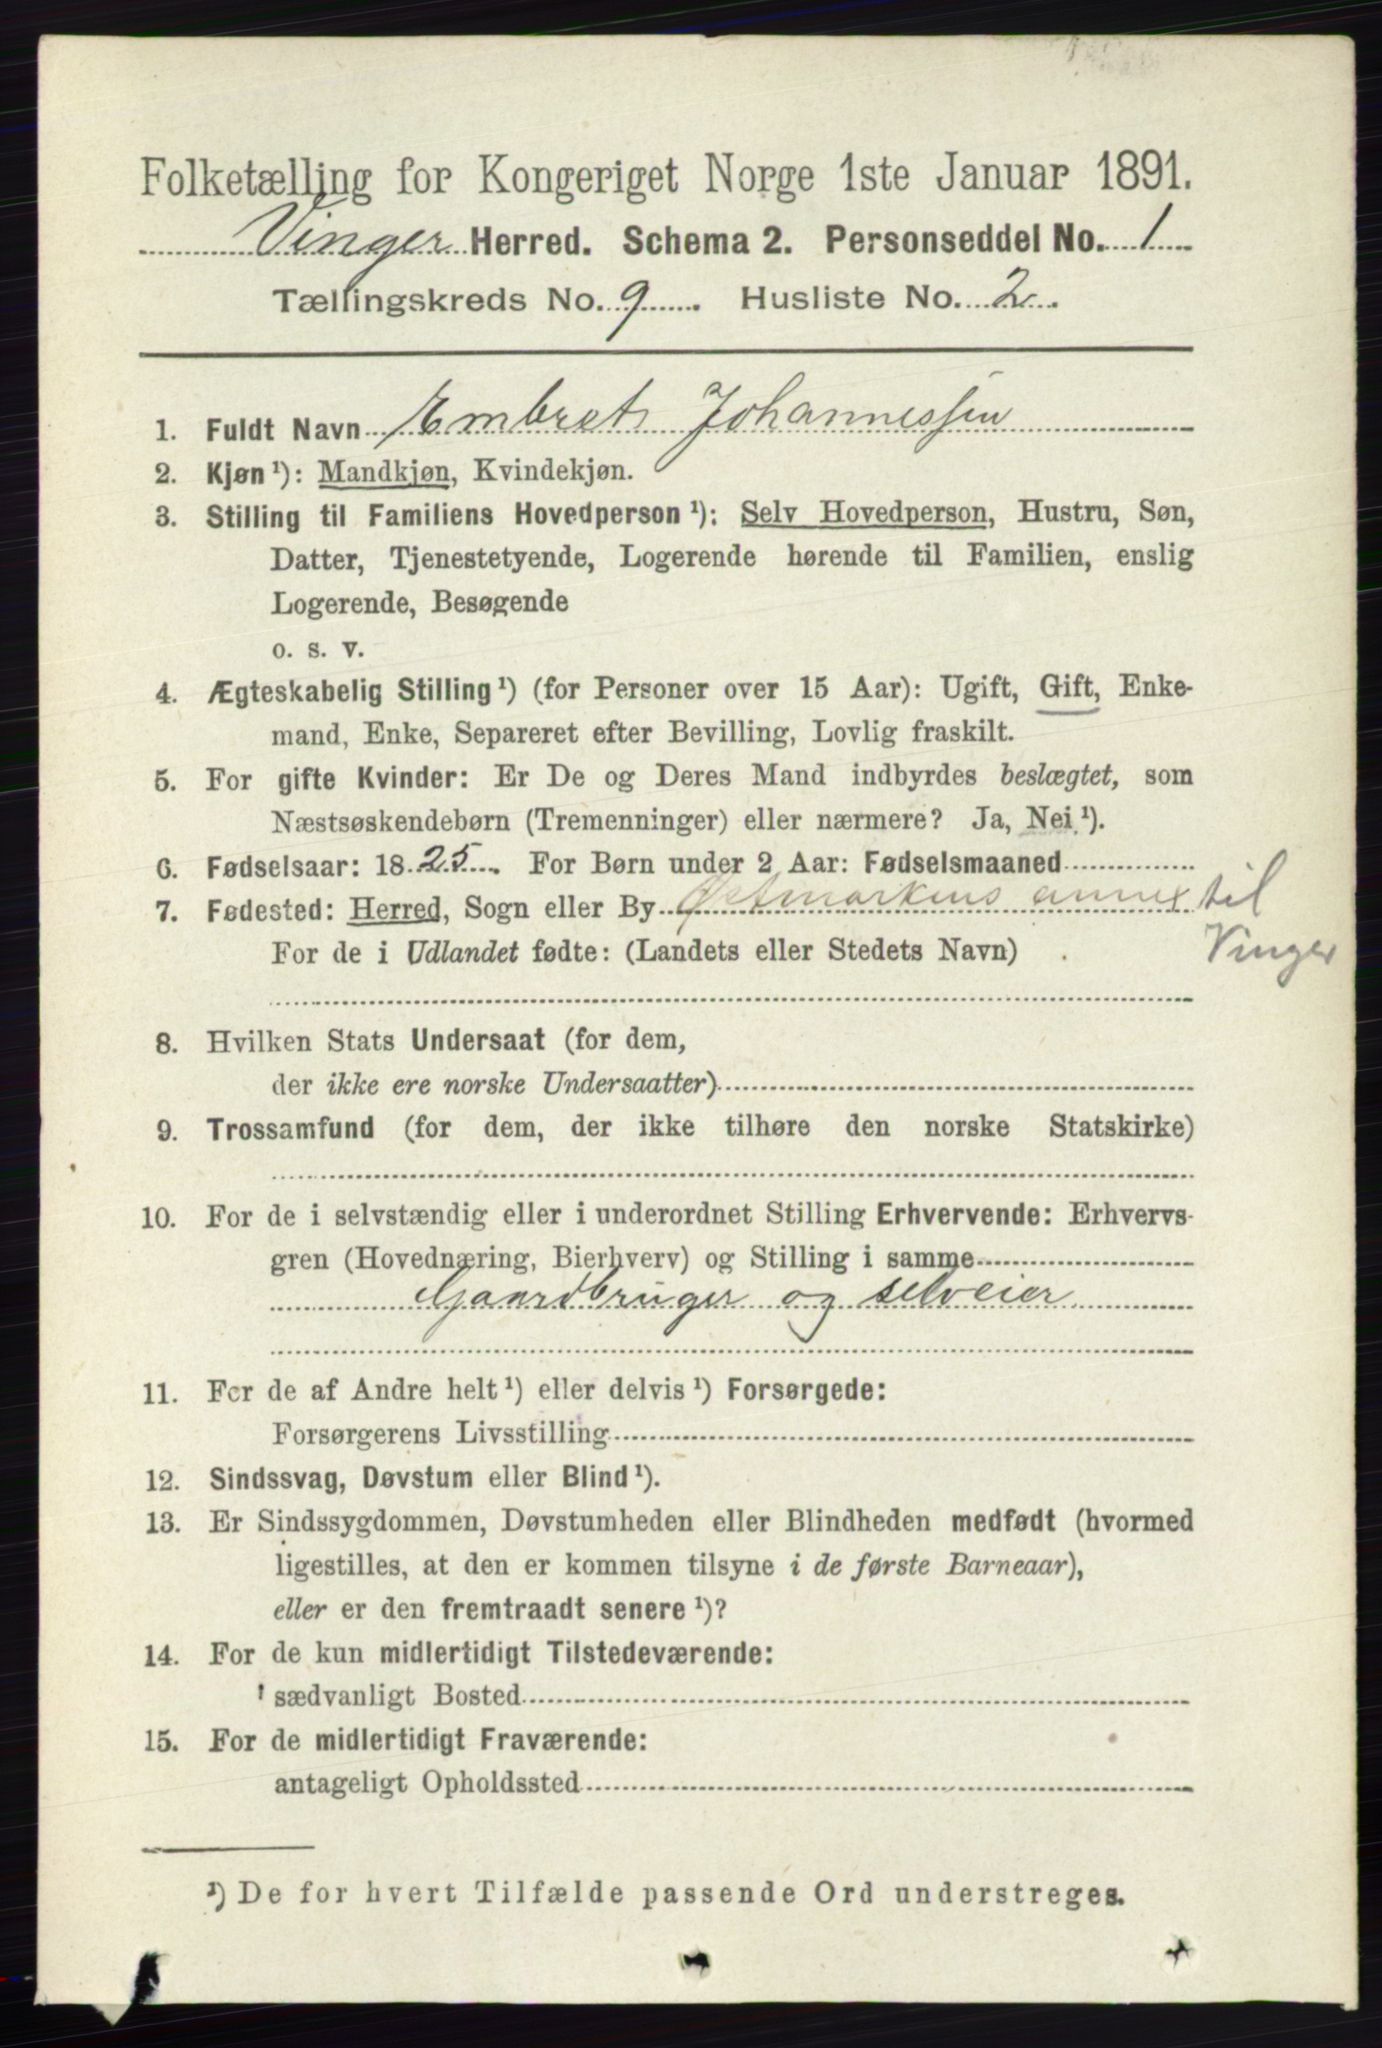 Folketælling for Kongeriget Norge 1ste Januar 1891.
Vinger Herred. Schema 2. Personseddel No. 1
Tællingskreds No. 9. Husliste No. 2.
1. Fuldt Navn Embret Johannessen
2. Kjøn ¹): Mandkjøn, Kvindekjøn.
3. Stilling til Familiens Hovedperson ¹): Selv Hovedperson, Hustru, Søn,
Datter, Tjenestetyende, Logerende hørende til Familien, enslig
Logerende, Besøgende
o. s. v.
4. Ægteskabelig Stilling ¹) (for Personer over 15 Aar): Ugift, Gift, Enke-
mand, Enke, Separeret efter Bevilling, Lovlig fraskilt.
5. For gifte Kvinder: Er De og Deres Mand indbyrdes beslægtet, som
Næstsøskendebørn (Tremenninger) eller nærmere? Ja, Nei ¹).
6. Fødselsaar: 1825. For Børn under 2 Aar: Fødselsmaaned
7. Fødested: Herred, Sogn eller By Østmarkens annex til
Vinger
For de i Udlandet fødte: (Landets eller Stedets Navn)
8. Hvilken Stats Undersaat (for dem,
der ikke ere norske Undersaatter)
9. Trossamfund (for dem, der ikke tilhøre den norske Statskirke)
10. For de i selvstændig eller i underordnet Stilling Erhvervende: Erhvervs-
gren (Hovednæring, Bierhverv) og Stilling i samme
Gaardbruger og selveier
11. For de af Andre helt ¹) eller delvis ¹) Forsørgede:
Forsørgerens Livsstilling
12. Sindssvag, Døvstum eller Blind ¹).
13. Er Sindssygdommen, Døvstumheden eller Blindheden medfødt (hvormed
ligestilles, at den er kommen tilsyne i de første Barneaar),
eller er den fremtraadt senere ¹)?
14. For de kun midlertidigt Tilstedeværende:
sædvanligt Bosted
15. For de midlertidigt Fraværende:
antageligt Opholdssted
¹) De for hvert Tilfælde passende Ord understreges.